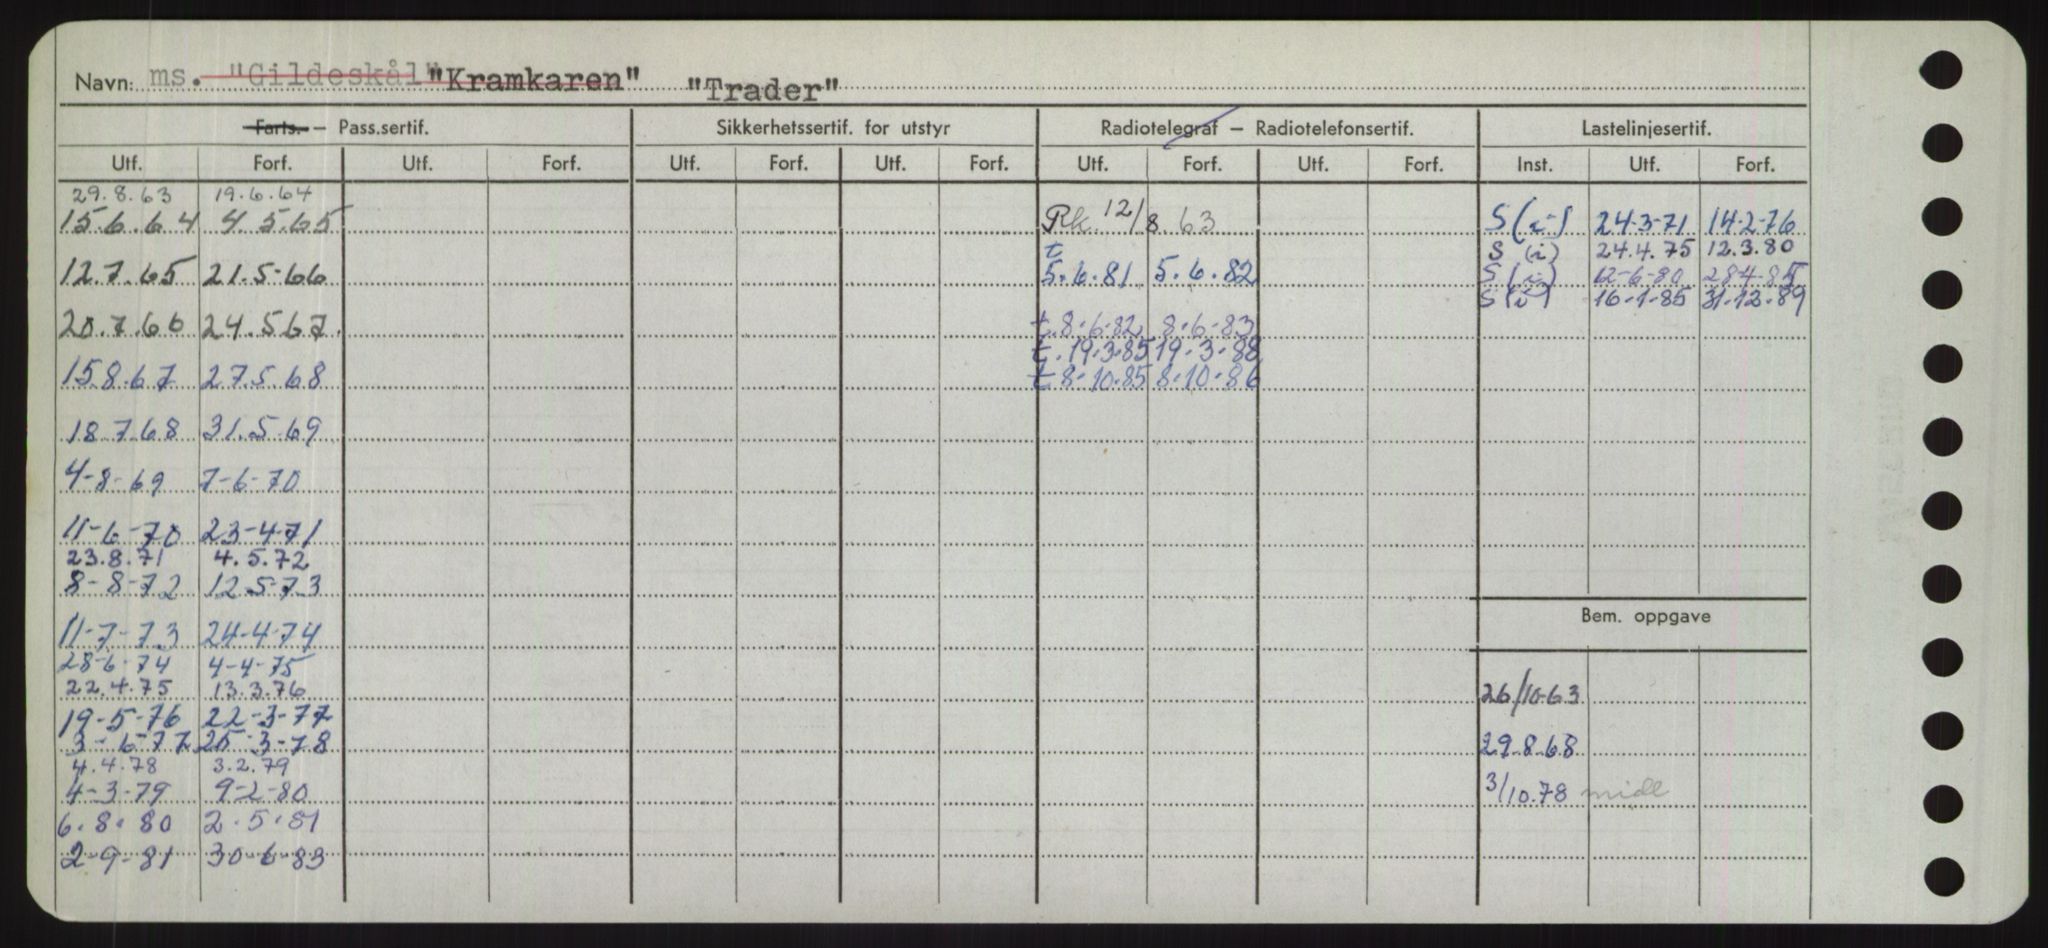 Navn: ms. "Gildeskål" "Kramkaren" "Trader"
Farts. – Pass.sertif. Sikkerhetssertif. for utstyr Radiotelegraf – Radiotelefonsertif. Lastelinjesertif.
Utf. Forf. Utf. Forf. Utf. Forf. Utf. Forf. Utf. Forf. Utf. Forf. Inst. Utf. Forf.
29.8.63 19.6.64
15.6.64 4.5.65 Rk. 12/8.63 S (i) 24-3-71 14-2-76
t S (i) 24.4.75 12.3.80
12.7.65 21.5-66 5.6.81 5.6.82 S (i) 12-6-80 28-4-85
S (i) 16-1-85 31-12-89
20.7.66 24.5.67. t.8.6.82 8.6.83
t.19.3.85 19.3.88
15.8.67 27.5.68 t.8.10.85 8.10.86
18.7.68 31.5.69
4-8-69 7-6-70
11-6-70 23-4-71
23.8.71 4.5.72
8-8-72 12-5-73
Bem. oppgave
11-7-73 24-4-74
28-6-74 4-4-75
22.4.75 13.3.76 26/10-63
19-5-76 22-3-77
3-6-77 25-3-78 29.8.68
4.4.78 3.2.79
4-3-79 9-2-80 3/10.78 midl
6.8.80 2.5.81
2-9-81 30-6-83